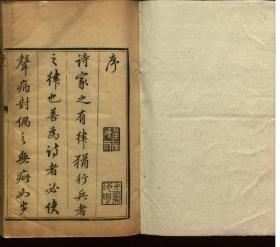 序
詩家之有律猶行兵者
之律也善為詩者必使
聲病對偶之無疵如步